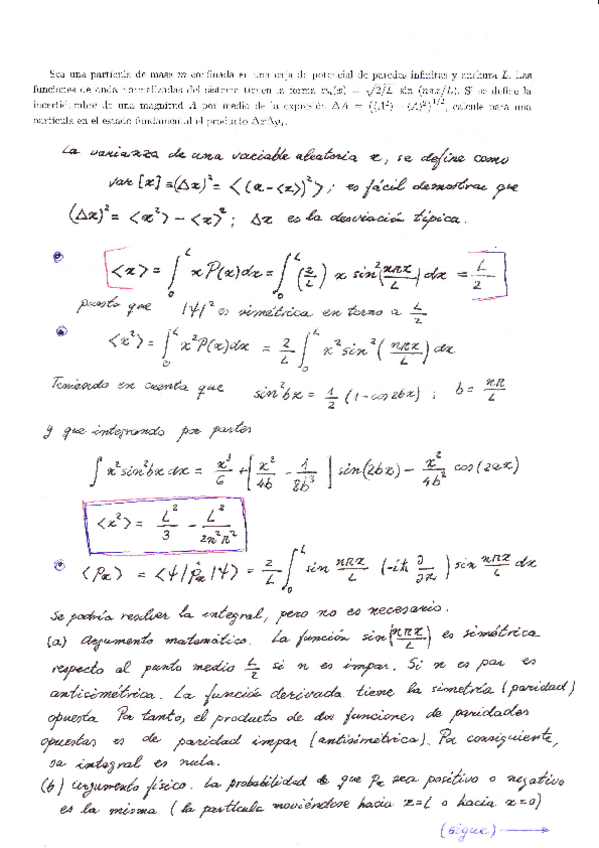 Sea una partícula de masa m confinada en una caja de potencial de paredes infinitas y anchura L. Las
funciones de onda normalizadas del sistema tienen la forma ψn(x) = √2/L sin (nπx/L). Si se define la
incertidumbre de una magnitud A por medio de la expresión ΔA = (⟨A²⟩ − ⟨A⟩²)^1/2, calcule para una
partícula en el estado fundamental el producto
La varianza de una variable aleatoria x, se define como
var [x] ≡ (Δx)² = <(x-<x>)²> ; es fácil demostrar que
(Δx)² = <x²> - <x>² ; Δx es la desviación típica.
<x> = ∫₀ᴸ x P(x)dx = ∫₀ᴸ (2/L) x sin²(nπx/L) dx = L/2
puesto que |Ψ|² es simétrica en torno a L/2
<x²> = ∫₀ᴸ x² P(x)dx = 2/L ∫₀ᴸ x² sin²(nπx/L) dx
Teniendo en cuenta que sin²bx = 1/2 (1-cos2bx) ; b = nπ/L
y que integrando por partes
∫ x² sin²bx dx = x³/6 + [x²/4b - 1/8b³] sin(2bx) - x²/4b² cos(2ax)
<x²> = L²/3 - L²/2n²π²
<px> = <Ψ|p̂x|Ψ> = 2/L ∫₀ᴸ sin nπx/L (-iħ ∂/∂x) sin nπx/L dx
Se podría resolver la integral, pero no es necesario.
(a) Argumento matemático. La función sin(nπx/L) es simétrica
respecto al punto medio L/2 si n es impar. Si n es par es
antisimétrica. La función derivada tiene la simetría (paridad)
opuesta. Por tanto, el producto de dos funciones de paridades
opuestas es de paridad impar (antisimétrica). Por consiguiente,
su integral es nula.
(b) Argumento físico. La probabilidad de que px sea positivo o negativo
es la misma (la partícula moviéndose hacia x=L o hacia x=0)
(sigue) →